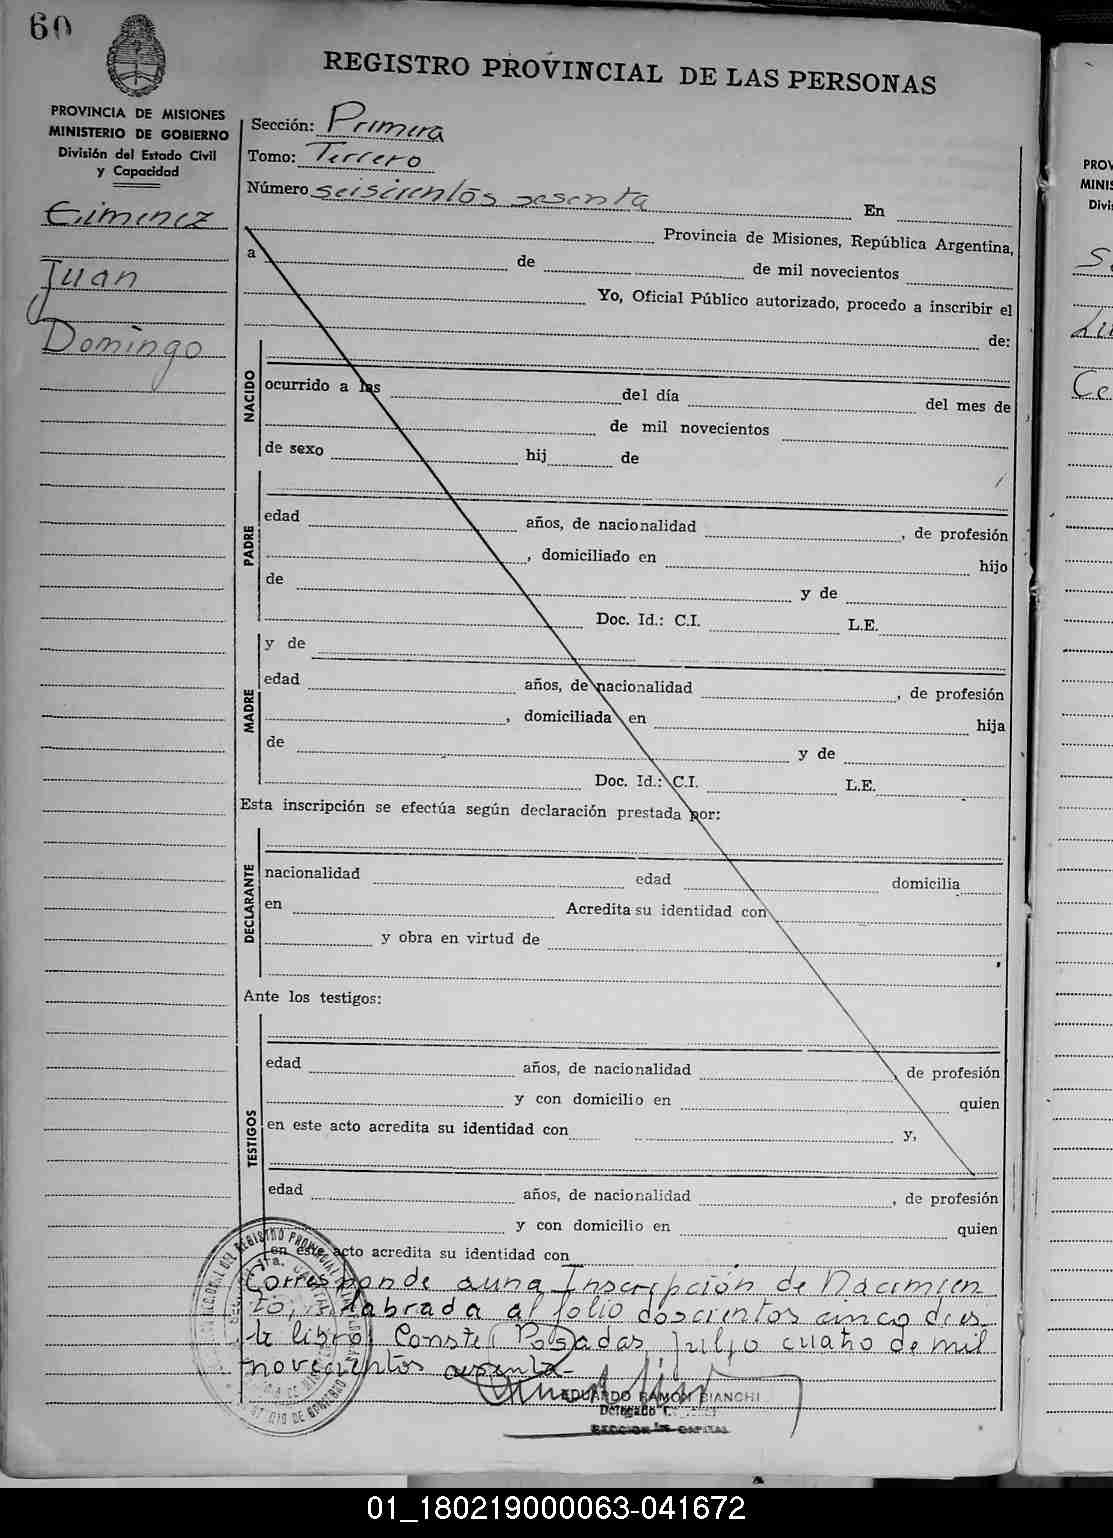 60
REGISTRO PROVINCIAL DE LAS PERSONAS
PROVINCIA DE MISIONES
MINISTERIO DE GOBIERNO
División del Estado Civil
y Capacidad
Gimenez
Juan
Domingo
Sección: Primera
Tomo: Tercero
Número seiscientos sesenta En
Provincia de Misiones, República Argentina,
a de de mil novecientos
Yo, Oficial Público autorizado, procedo a inscribir el
de:
NACIDO
ocurrido a las del día del mes de
de mil novecientos
de sexo hij de
PADRE
edad años, de nacionalidad , de profesión
, domiciliado en hijo
de y de
Doc. Id.: C.I. L.E.
y de
MADRE
edad años, de nacionalidad , de profesión
, domiciliada en hija
de y de
Doc. Id.: C.I. L.E.
Esta inscripción se efectúa según declaración prestada por:
DECLARANTE
nacionalidad edad domicilia
en Acredita su identidad con
y obra en virtud de
Ante los testigos:
TESTIGOS
edad años, de nacionalidad , de profesión
y con domicilio en quien
en este acto acredita su identidad con y,
edad años, de nacionalidad , de profesión
y con domicilio en quien
en este acto acredita su identidad con
Corresponde a una Inscripción de Nacimien
to, labrada al folio doscientos cinco de es
te libro. Conste. Posadas, Julio cuatro de mil
novecientos sesenta.-
EDUARDO RAMON BIANCHI
Delegado
SECCION 1ra CAPITAL
PROV
MINIS
Divi
01_180219000063-041672